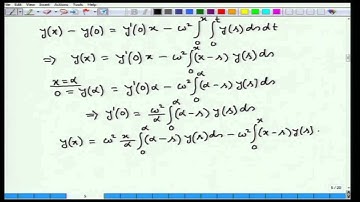 y(x) - y(0) = y'(0) x - ω² ∫₀ˣ ∫₀ᵗ y(s) ds dt
⇒ y(x) = y'(0) x - ω² ∫₀ˣ (x-s) y(s) ds
x=α
0 = y(α) = y'(0) α - ω² ∫₀^α (α-s) y(s) ds
⇒ y'(0) = ω²/α ∫₀^α (α-s) y(s) ds
y(x) = ω² x/α ∫₀^α (α-s) y(s) ds - ω² ∫₀ˣ (x-s) y(s).